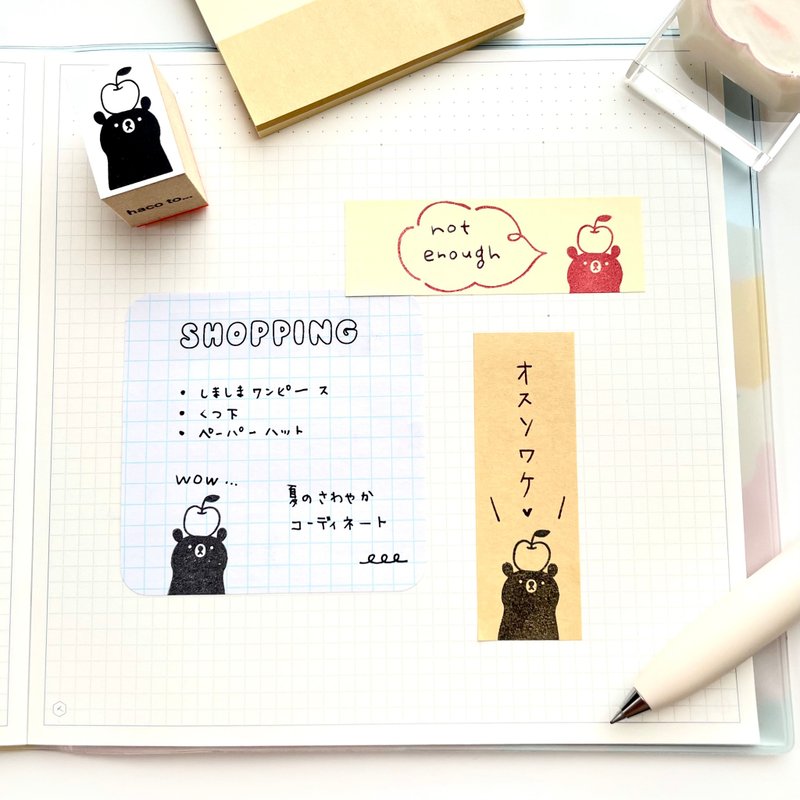 haco to...
not
enough
SHOPPING
• しましまワンピース
• くつ下
• ペーパーハット
wow...
夏のさわやか
コーディネート
オスソワケ